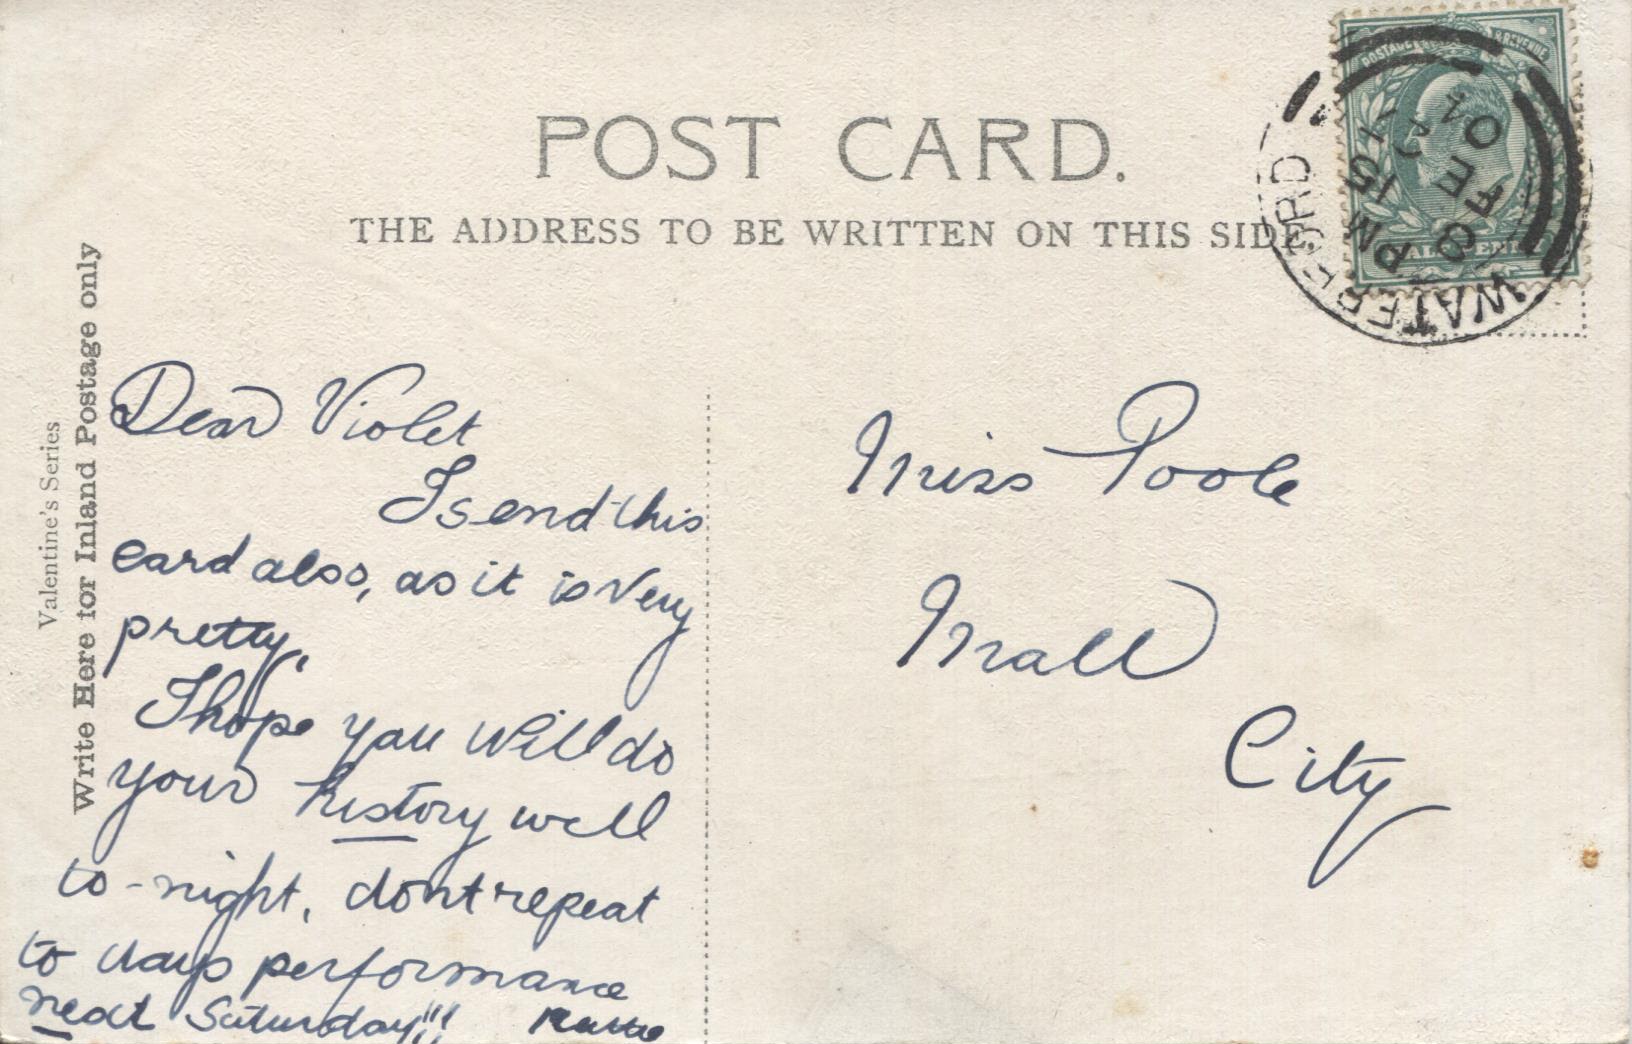 POST CARD.
THE ADDRESS TO BE WRITTEN ON THIS SIDE.
Valentine's Series
Write Here for Inland Postage only
POSTAGE & REVENUE
WATERFORD
PM 15
9 FE
04
Dear Violet
I send this
card also, as it is very
pretty,
I hope you will do
your history well
to-night, dont repeat
to days performance
next Saturday!!!
Miss Poole
Mall
City